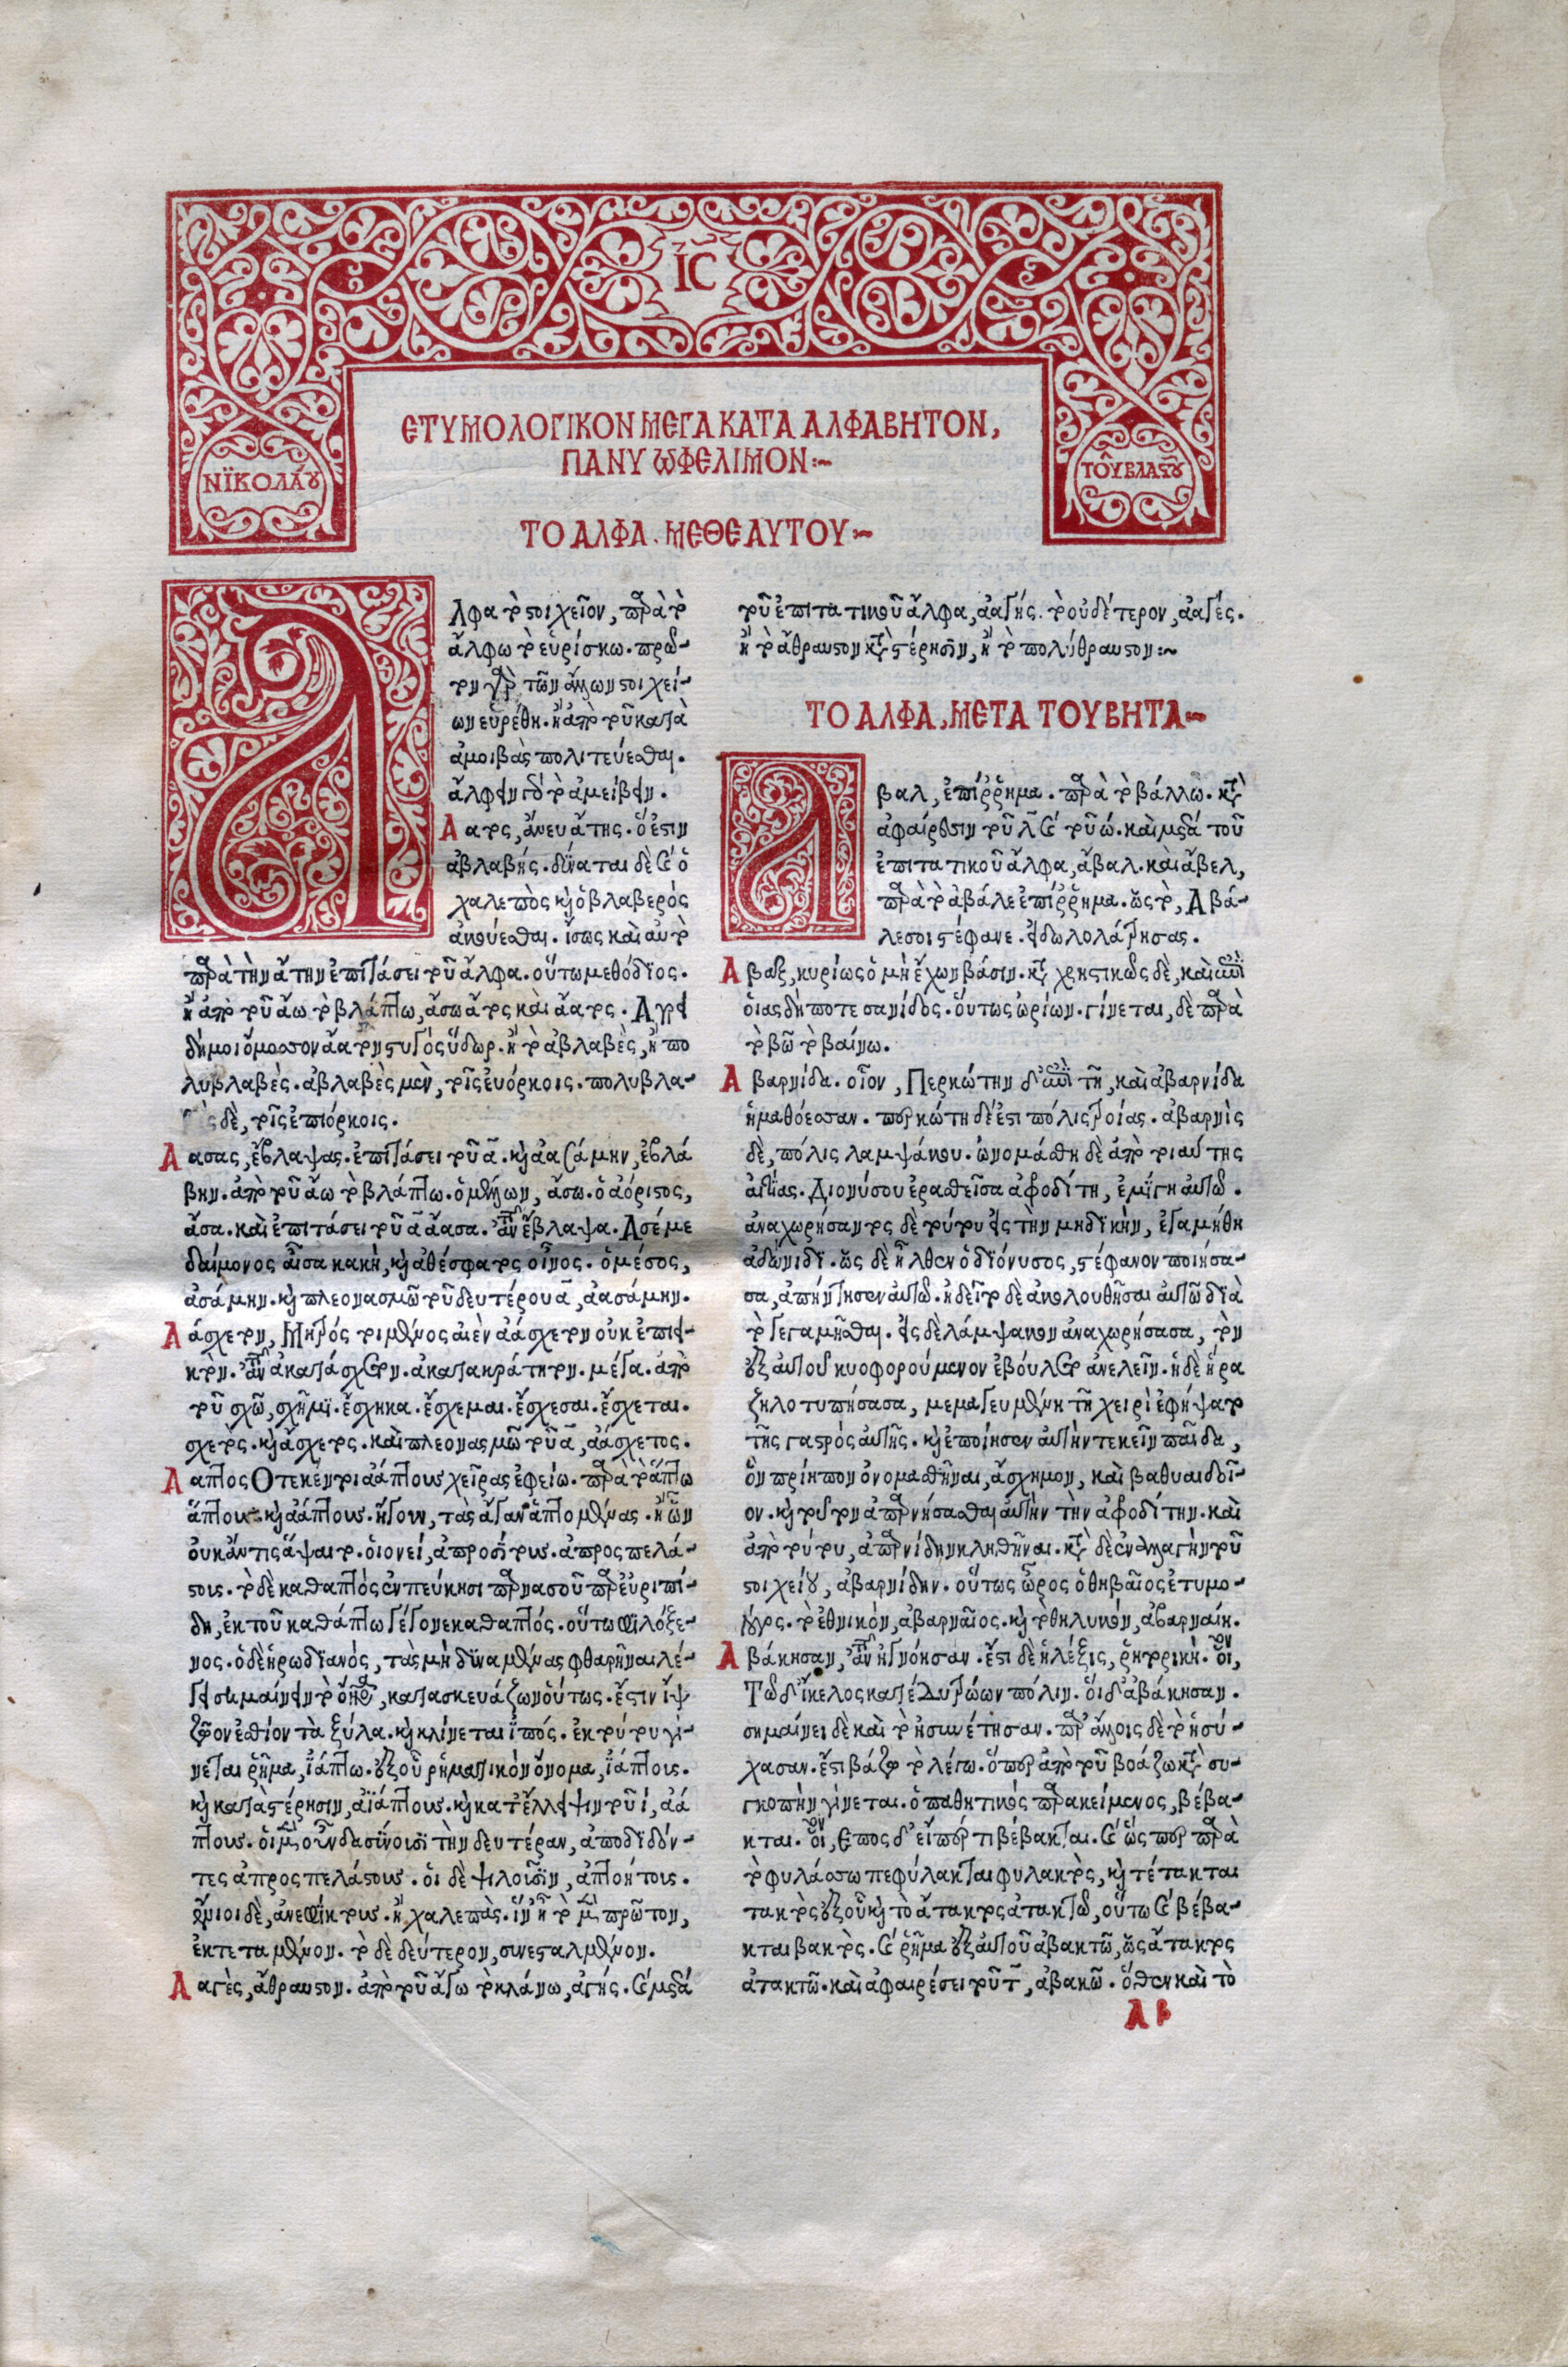 ΙС
ΝΪΚΟΛΆΟΥ
ΤΟΥ͂ ΒΛΑΣΤΟΥ͂
ΕΤΥΜΟΛΟΓΙΚΟΝ ΜΕΓΑ ΚΑΤΑ ΑΛΦΑΒΗΤΟΝ,
ΠΑΝΥ ΩΦΕΛΙΜΟΝ:~
ΤΟ ΑΛΦΑ. ΜΕΘ ΕΑΥΤΟΥ:~
Αλφα τὸ στοιχεῖον, παρὰ τὸ
ἄλφω τὸ εὑρίσκω. πρῶ-
τον γὰρ τῶν ἄλλων στοιχεί-
ων εὑρέθη. ἢ ἀπὸ τοῦ κατὰ
ἀμοιβὰς πολιτεύεσθαι.
ἄλφειν γὰρ τὸ ἀμείβειν.
Αατος, ἄνευ ἄτης. ὅ ἐστιν
ἀβλαβής. δύναται δὲ καὶ ὁ
χαλεπὸς καὶ ὁ βλαβερὸς
ἀκούεσθαι. ἴσως καὶ αὐτὸ
παρὰ τὴν ἄτην ἐπιτάσει τοῦ ἄλφα. οὕτω μεθόδϊος.
ἢ ἀπὸ τοῦ ἄω τὸ βλάπτω, ἄσω ἄτος καὶ ἄατος. Αγρει
δή μοι ὄμοσσον ἀατον στυγὸς ὕδωρ. ἢ τὸ ἀβλαβὲς, ἢ πο
λυβλαβὲς. ἀβλαβὲς μὲν, τοῖς εὐόρκοις. πολυβλα-
ὲς δὲ, τοῖς ἐπιόρκοις.
Αασας, ἔβλαψας. ἐπιτάσει τοῦ α. καὶ ἀασάμην, ἐβλά
βην. ἀπὸ τοῦ ἄω τὸ βλάπτω. ὁ μέλλων, ἄσω. ὁ ἀόριστος,
ἄσα. καὶ ἐπιτάσει τοῦ α ἄασα. ἀντὶ τοῦ ἔβλαψα. Ασέ με
δαίμονος αἶσα κακὴ, καὶ ἀθέσφατος οἶνος. ὁ μέσος,
ἀσάμην. καὶ πλεονασμῶ τοῦ δευτέρου α, ἀασάμην.
Αάσχετον, Μητρός τοι μένος αἰὲν ἀάσχετον οὐκ ἐπιει-
κτόν. ἀντὶ τοῦ ἀκατάσχετον. ἀκατακράτητον. μέγα. ἀπὸ
τοῦ σχῶ, σχῆμϊ. ἔσχηκα. ἔσχεμαι. ἔσχεσαι. ἔσχεται.
σχετός. καὶ ἄσχετος. καὶ πλεονασμῶ τοῦ α, ἀάσχετος.
Ααπτος Οτε κέν τοι ἀάπτους χεῖρας ἐφείω. παρὰ τὸ ἅπτω
ἅπτους καὶ ἀάπτους. ἤγουν, τὰς ἄγαν ἁπτομένας. ἢ ὧν
οὐκ ἄν τις ἅψαιτο. οἱονεί, ἀπροσίτους. ἀπροσπελά-
στοις. τὸ δὲ καθαπτὸς ἐν πεύκησι παρνασοῦ παρ εὐριπί-
δη, ἐκ τοῦ καθάπτω γέγονε καθαπτός. οὕτω φιλόξε-
νος. ὁ δὲ ἡρωδϊανὸς, τὰς μὴ δϋναμένας φθαρῆναι λέ-
γει σημαίνειν τὸ ὄνομα, κατασκευάζων οὕτως. ἔστιν ἴψ
ζῶον ἐσθίον τὰ ξύλα. καὶ κλίνεται ἰπός. ἐκ τούτου γί-
νεται ῥῆμα, ἰάπτω. ἐξ οὗ ῥηματικὸν ὄνομα, ἰάπτοις.
καὶ κατὰ στέρησιν, ἀϊάπτους. καὶ κατ ἔλλειψιν τοῦ ι, ἀά
πτους. οἱ μὲν οὖν δασύνουσι τὴν δευτέραν, ἀποδϊδόν-
τες ἀπροσπελάστους. οἱ δὲ ψιλοῦσιν, ἀπτοήτοις.
ἔνιοι δὲ, ἀνεφίκτους. ἢ χαλεπὰς. ἵν ἦ τὸ μὲν πρῶτον,
ἐκτεταμένον. τὸ δὲ δεύτερον, συνεσταλμένον.
Ααγὲς, ἄθραυστον. ἀπὸ τοῦ ἄγω τὸ κλάνω, ἀγής. καὶ μετὰ
τοῦ ἐπιτατικοῦ ἄλφα, ἀαγής. τὸ οὐδέτερον, ἀαγές.
ἢ τὸ ἄθραυστον κατὰ στέρησιν, ἢ τὸ πολύθραυστον:~
ΤΟ ΑΛΦΑ, ΜΕΤΑ ΤΟΥ ΒΗΤΑ~
Αβαλ, ἐπίῤῥημα. παρὰ τὸ βάλλω. κατὰ
ἀφαίρεσιν τοῦ λ καὶ τοῦ ω. καὶ μετὰ τοῦ
ἐπιτατικοῦ ἄλφα, ἄβαλ. καὶ ἄβελ,
παρὰ τὸ ἀβάλε ἐπίῤῥημα. ὥς τὸ, Αβά-
λε σοι στέφανε. εἰδωλολάτρησας.
Αβαξ, κυρίως ὁ μὴ ἔχων βάσιν. καταχρηστικῶς δὲ, καὶ ἐπὶ
οἵας δήποτε σανίδος. οὕτως ὠρίων. γίνεται, δὲ παρὰ
τὸ βῶ τὸ βαίνω.
Αβαρνίδα. οἷον, Περκώτην δ ἐπὶ τῆ, καὶ ἀβαρνίδα
ἠμαθόεσσαν. περκώτη δέ ἐστι πόλις τροίας. ἀβαρνὶς
δὲ, πόλις λαμψάκου. ὠνομάσθη δὲ ἀπὸ τοιαύτης
αἰτίας. Διονύσου ἐρασθεῖσα ἀφροδίτη, ἐμίγη αὐτῶ.
ἀναχωρήσαντος δὲ τούτου εἰς τὴν ϊνδϊκὴν, ἐγαμήθη
ἀδώνιδϊ. ὡς δὲ ἦλθεν ὁ δϊόνυσος, στέφανον ποιήσα-
σα, ἀπήντησεν αὐτῶ. ἠδεῖτο δὲ ἀκολουθῆσαι αὐτῶ δϊὰ
τὸ γεγαμῆσθαι. εἰς δὲ λάμψακον ἀναχωρήσασα, τὸν
ἐξ αὐτοῦ κυοφορούμενον ἐβούλετο ἀνελεῖν. ἡ δὲ ἥρα
ζηλοτυπήσασα, μεμαγευμένη τῆ χειρὶ ἐφήψατο
τῆς γαστρὸς αὐτῆς. καὶ ἐποίησεν αὐτὴν τεκεῖν παῖδα,
ὃν πρίηπον ὀνομασθῆναι, ἄσχημον, καὶ βαθυαιδοῖ-
ον. καὶ τοῦτον ἀπαρνήσασθαι αὐτὴν τὴν ἀφροδίτην. καὶ
ἀπὸ τούτου, ἀπαρνίδην κληθῆναι. κατὰ δὲ ἐναλλαγὴν τοῦ
στοιχείου, ἀβαρνίδην. οὕτως ὦρος ὁ θηβαῖος ἐτυμο-
λόγος. τὸ ἐθνικὸν, ἀβαρναῖος. καὶ τὸ θηλυκὸν, ἀβαρναία.
Αβάκησαν, ἀντὶ τοῦ ἠγνόησαν. ἔστι δὲ ἡ λέξις, ῥητορική. οἷον,
Τῶ δ ἴκελος κατέδυ τρώων πόλιν. οἱ δ ἀβάκησαν.
σημαίνει δὲ καὶ τὸ ἠσυνέτησαν. παρ ἄλλοις δὲ τὸ ἡσύ-
χασαν. ἔστι βάζω τὸ λέγω. ὅπερ ἀπὸ τοῦ βοάζω κατὰ συ-
γκοπὴν γίνεται. ὁ παθητικὸς παρακείμενος, βέβα-
κται. οἷον, Επος δ εἴπερ τι βέβακται. καὶ ὥς περ παρὰ
τὸ φυλάσσω πεφύλακται φυλακτὸς, καὶ τέτακται
τακτὸς ἐξ οὗ καὶ τὸ ἄτακτος ἀτακτῶ, οὕτω καὶ βέβα-
κται βακτὸς. καὶ ῥῆμα ἐξ αὐτοῦ ἀβακτῶ, ὥς ἄτακτος
ἀτακτῶ. καὶ ἀφαιρέσει τοῦ τ, ἀβακῶ. ὅθεν καὶ τὸ
Α β